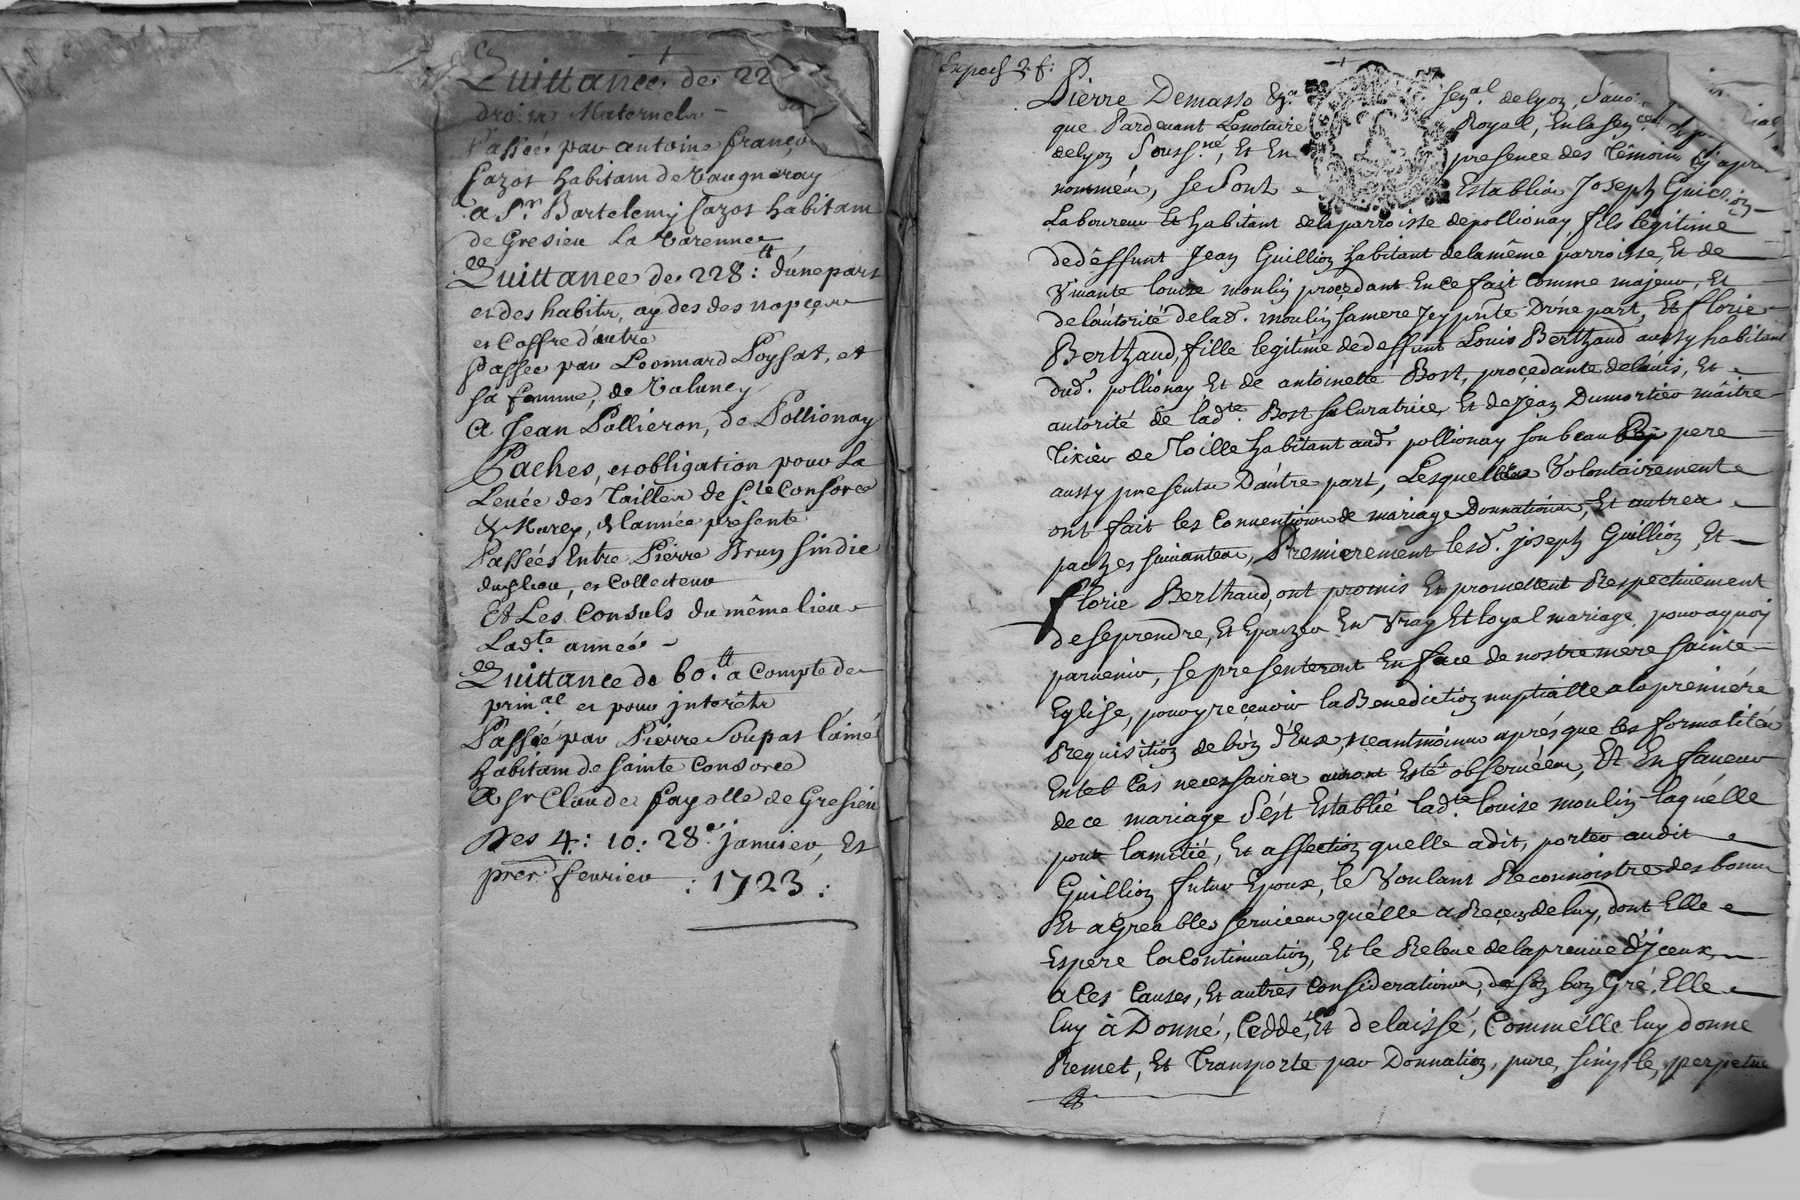 Quittance de 22
droits Maternels
Passée par antoine françois
Jazot habitant de Vaugneray
a Sr. Bartelemy Jazot habitant
de Gresieu La Varenne
Quittance de 228tt: d'une part
et des habits, aydes des nopçes
et Coffre d'autre
Passée par Leonnard Poysat, et
sa femme, de Taluney
A Jean Pollieron, de Pollionay
Paches, et obligation pour La
Leuée des Tailles de Ste Consorce
& Marey, & l'année presente
Passées Entre Pierre Brun sindic
dudlieu, et Collecteur
Et Les Consuls du même lieu
Ladte. année
Quittance de 60tt. a Compte de
prinal et pour jnterêts
Passée par Pierre Soupat l'ainé
habitant de sainte Consorce
A sr Claude Fayolle de Gresieu
Des 4: 10: 28e. januier, Et
prer. feurier : 1723 :
Expocf 2. f:
Pierre Demasso senal. de lyon,
que Pardeuant Lenotaire Royal, En la
delyon Soussné, Et En presence des Témoins cy apres
nommés, se Sont Establis Joseph Guillion
Laboureur Et habitant dela parroisse de pollionay, fils legitime
dedéffunt Jean Guillion habitant delamême parroisse, Et de
Viuante louise moulin procedant En ce fait Comme majeur, Et
delautorité delad. moulin samere Jcy pnte D'úne part, Et florie
Berthaud, fille legitime dedeffunt Louis Berthaud aussy habitant
dud. pollionay, Et de antoinette Bost, proçedante de lauis, Et
autorité de ladte. Bost sa Curatrice, Et de jean Dumortier maitre
Tixier de Toille habitant aud. pollionay son beau pere
aussy presents D'autre part, Lesquelles Volontairement
ont fait les Conuentions de mariage Donnations, Et autres
paches suiuantes, Premierement lesd. joseph Guillion, Et
florie Berthaud, ont promis Et promettent Respectiuement
deseprendre, Et Epouzer En Vray Et loyal mariage, pour aquoy
paruenir, se presenteront En face de nostre mere sainte
Eglise, pouryreçeuoir la Benediction nuptialle a la premiére
Requisition de l'ún d'Eux, neantmoins aprés que les formalités
En tel Cas necessaires auront Esté obseruées, Et En faueur
de ce mariage s'ést Establie ladte. louise moulin laquélle
pour lamitié, Et affection quelle adit, porter audit
Guillion futur Epoux, le Voulant Reconnoistre des bons
Et agreables seruices quélle a Reçeus de luy, dont Elle
Espere la Continuation, Et le Releue de la preuue d'jceux,
a Ces Causes, Et autres Considerations, de son bon Gré, Elle
luy à Donné, Ceddé, Et delaissé, Comme élle luy donne
Remet, Et Transporte par Donnation, pure, simple, perpetue